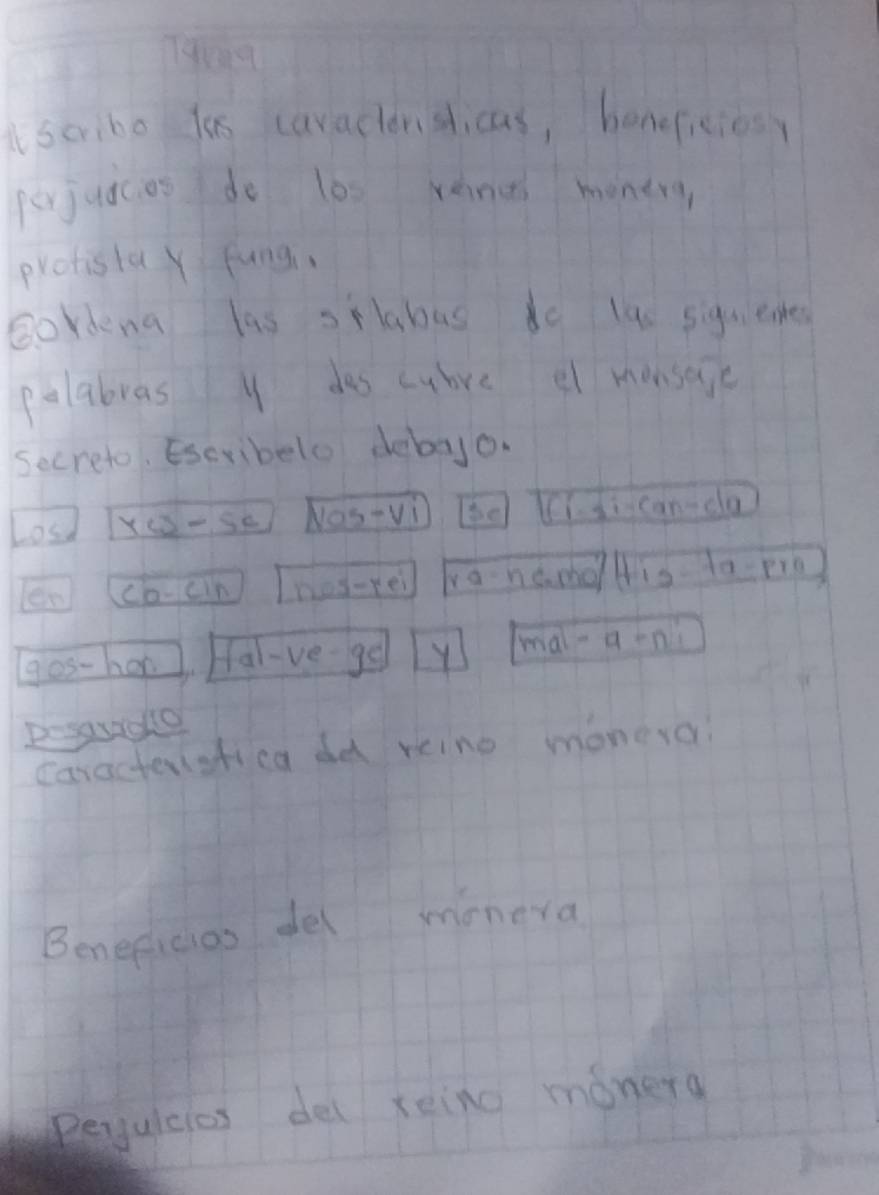 Escribo las características, beneficios y
perjuicios de los reinos monera,
protista y fungi.
2 Ordena las sílabas de las siguientes
palabras y descubre el mensaje
Secreto. Escribelo debajo.
Los res-se Nos-vi se ci-fi-can-cla
en co-cin nos-rei ra-nemo tis-ta-pro
gos-hon, tal-ve-ge y mal-a-ni
Desarrollo
Característica del reino mónera:
Beneficios del mónera
Perjuicios del reino mónera